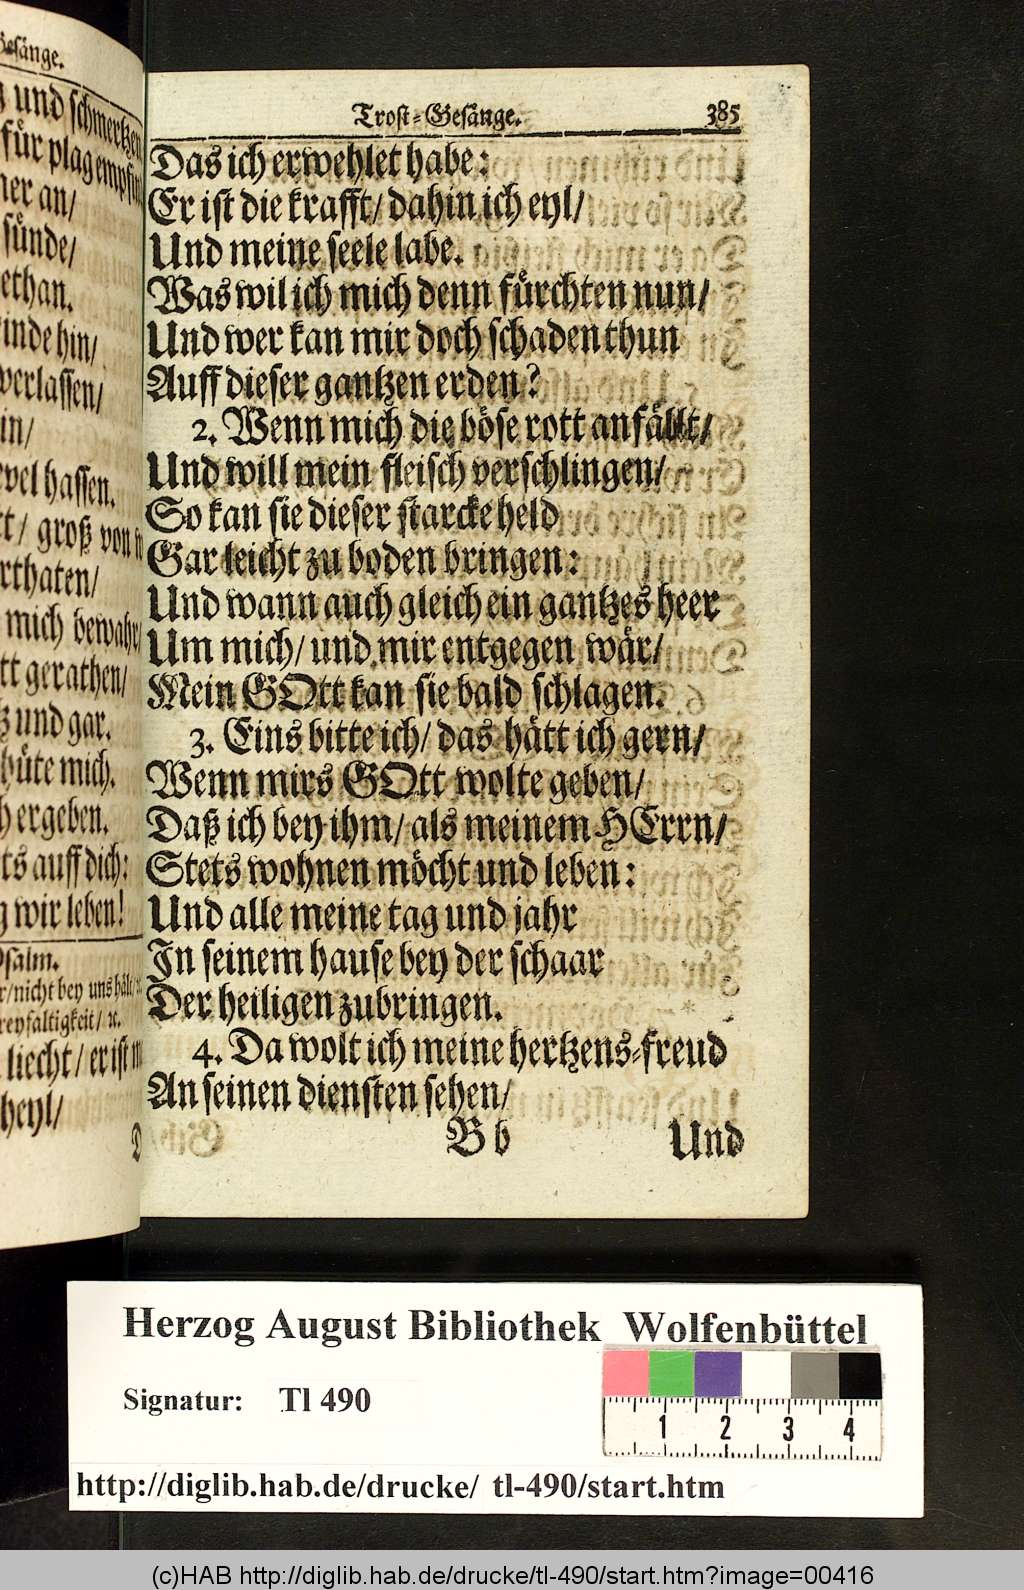 Gesänge.
und schmertzen
für plag empfin
ner an/
sünde/
ethan.
inde hin/
verlassen/
in/
vel hassen.
groß von
rthaten/
mich bewahr/
tt gerathen/
und gar.
büte mich.
ergeben.
ts auff dich:
wir leben!
Psalm.
nicht bey uns hält/
reyfaltigkeit/ ꝛc.
liecht/ er ist
heyl/
D
Trost-Gesänge. 385
Das ich erwehlet habe:
Er ist die krafft/ dahin ich eyl/
Und meine seele labe.
Was wil ich mich denn fürchten nun/
Und wer kan mir doch schaden thun
Auff dieser gantzen erden?
2. Wenn mich die böse rott anfällt/
Und will mein fleisch verschlingen/
So kan sie dieser starcke held
Gar leicht zu boden bringen:
Und wann auch gleich ein gantzes heer
Um mich/ und mir entgegen wär/
Mein GOtt kan sie bald schlagen.
3. Eins bitte ich/ das hätt ich gern/
Wenn mirs GOtt wolte geben/
Daß ich bey ihm/ als meinem HErrn/
Stets wohnen möcht und leben:
Und alle meine tag und jahr
In seinem hause bey der schaar
Der heiligen zubringen.
4. Da wolt ich meine hertzens-freud
An seinen diensten sehen/
B b Und
Herzog August Bibliothek Wolfenbüttel
Signatur: Tl 490
1 2 3 4
http://diglib.hab.de/drucke/ tl-490/start.htm
(c)HAB http://diglib.hab.de/drucke/tl-490/start.htm?image=00416